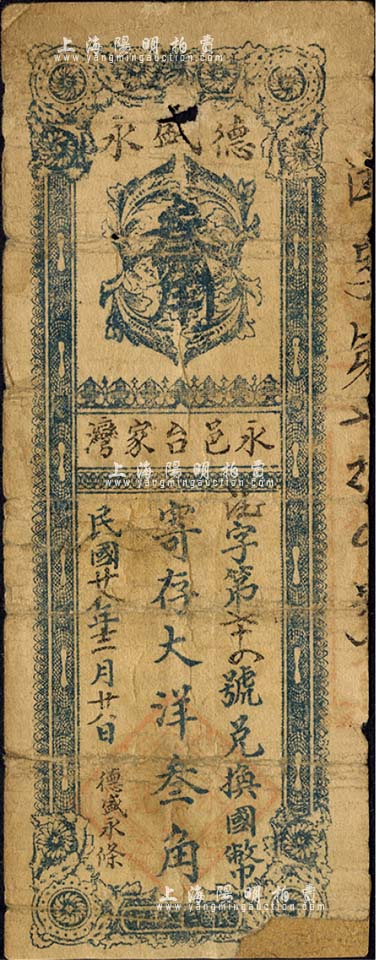 上海陽明拍賣
www.yangmingauction.com
德盛永
叁角
永邑台家灣
上海陽明拍賣
www.yangmingauction.com
字第
號兑換國幣
寄存大洋叁角
民國廿年十二月廿日
德盛永條
上海陽明拍賣
www.yangmingauction.com